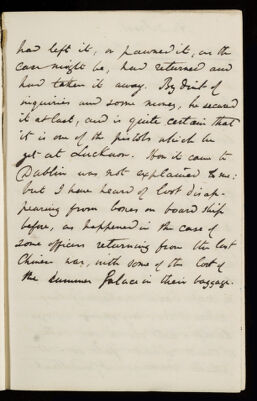 had left it, or pawned it, as the
case might be, had returned and
had taken it away. By dint of
inquiries and some money, he secured
it at last, and is quite certain that
it is one of the pistols which he
got at Lucknow. How it came to
Dublin was not explained to me:
but I have heard of loot disap-
pearing from boxes on board ship
before, as happened in the case of
some officers returning from the last
Chinese war, with some of the loot of
the Summer Palace in their baggage.